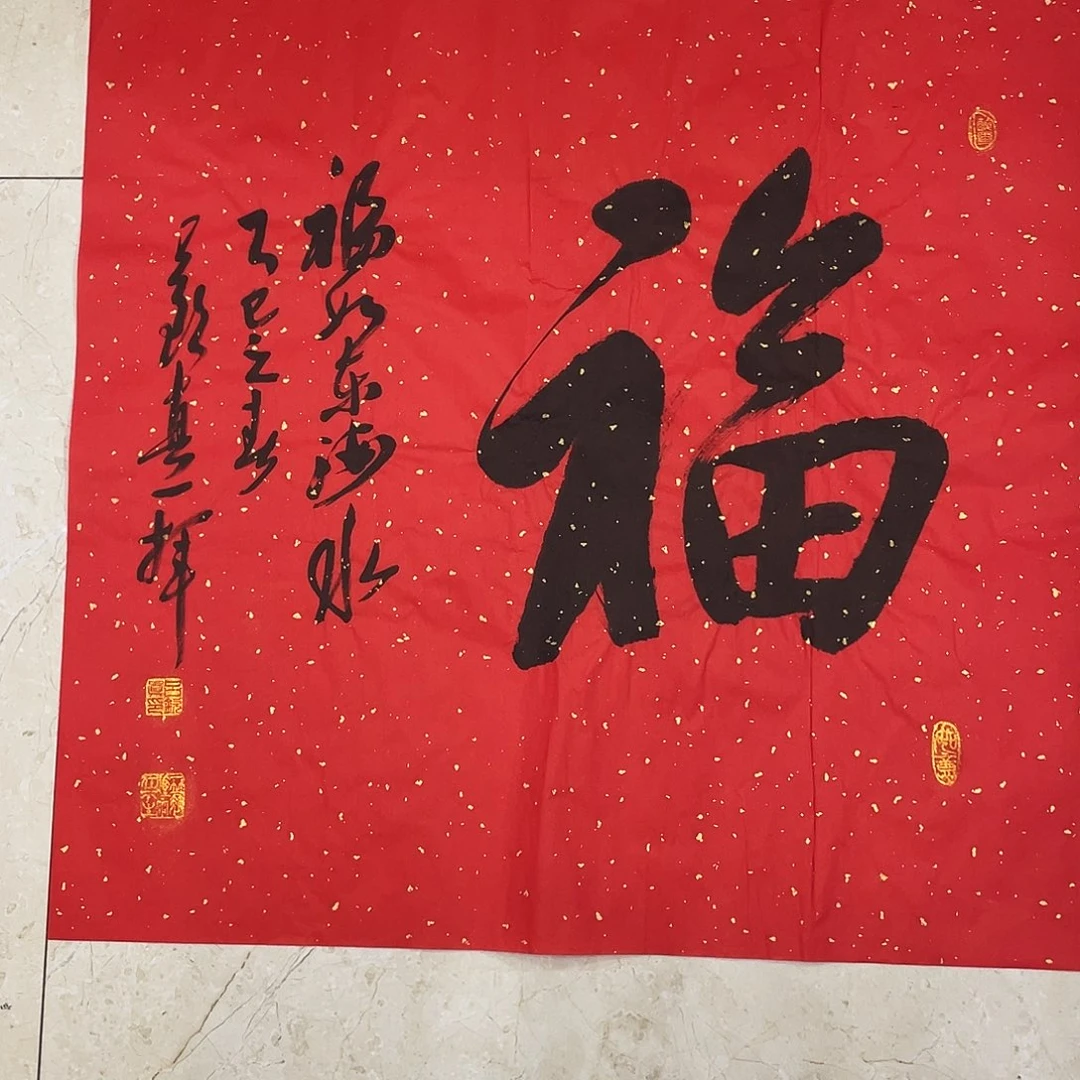 福
福如东海水
乙巳之春
真一挥